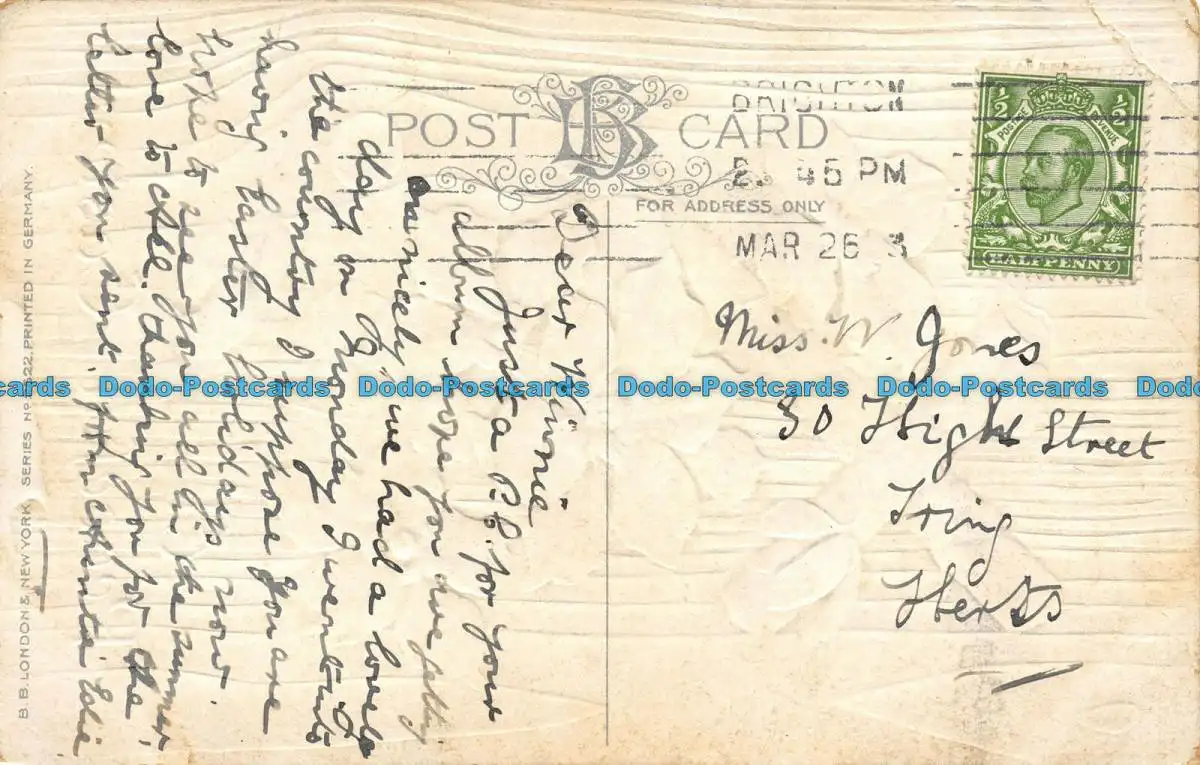 POST CARD
BB
FOR ADDRESS ONLY
BRIGHTON
2. 45 PM
MAR 26 3
½ ½
POSTAGE REVENUE
HALFPENNY
Miss. W. Jones
30 High Street
Tring
Herts
Dear Winnie
Just a P.C. for your
album hope you are getting
on nicely, we had a lovely
day on Monday I went into
the country I suppose you are
having Easter holidays now.
hope to see you all in the summer,
love to all. thanking you for the
letter you sent. from Edie
B.B. LONDON & NEW YORK SERIES No PRINTED IN GERMANY.
Dodo-Postcards Dodo-Postcards Dodo-Postcards Dodo-Postcards